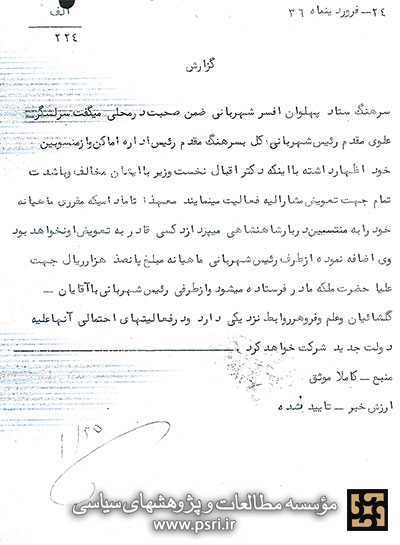 ۲۴ــ فروردینماه ۳۶
الف
۲۲۴
گزارش
سرهنگ ستاد پهلوان افسر شهربانی ضمن صحبت در محلی میگفت سرلشگر
علوی مقدم رئیس شهربانی کل بسرهنگ مقدم رئیس اداره اماکن و ازمنسوبین
خود اظهار داشته با اینکه دکتر اقبال نخست وزیر با ایشان مخالف و باشدت
تمام جهت تعویض مشارالیه فعالیت مینمایند معهذا تامادامیکه مقرری ماهیانه
خود را به منتسبین دربار شاهنشاهی میپردازد کسی قادر به تعویض او نخواهد بود
وی اضافه نموده از طرف رئیس شهربانی ماهیانه مبلغ پانصد هزار ریال جهت
علیا حضرت ملکه مادر فرستاده میشود و از طرفی رئیس شهربانی با آقایان ــ
گلشائیان و علم و فروهر روابط نزدیکی دارد و در فعالیتهای احتمالی آنها علیه
دولت جدید شرکت خواهد کرد
منبع ــ کاملا موثق
ارزش خبر ــ تایید شده
۱/۲۵
مؤسسه مطالعات و پژوهشهای سیاسی
www.psri.ir